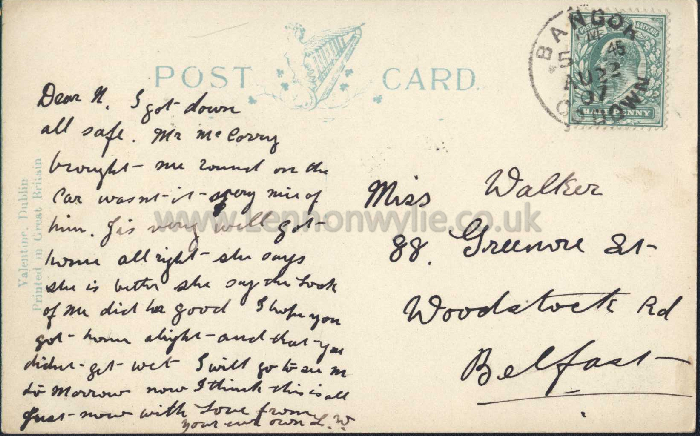 POST CARD.
BANGOR
5 45
AU 22
07
CO. DOWN
HALFPENNY
Valentine, Dublin
Printed in Great Britain
Dear N. I got down
all safe. Mr McCorry
brought me round on the
Car wasnt it very nice of
him. is very well got
home all right she says
she is better she say the look
of me did her good I hope you
got home alright and that you
didnt get wet I will go to see
to Morrow now I think this is all
Just now with Love from
your own L. W.
Miss Walker
88. Greenore St
Woodstock Rd
Belfast
www.Lennonwylie.co.uk